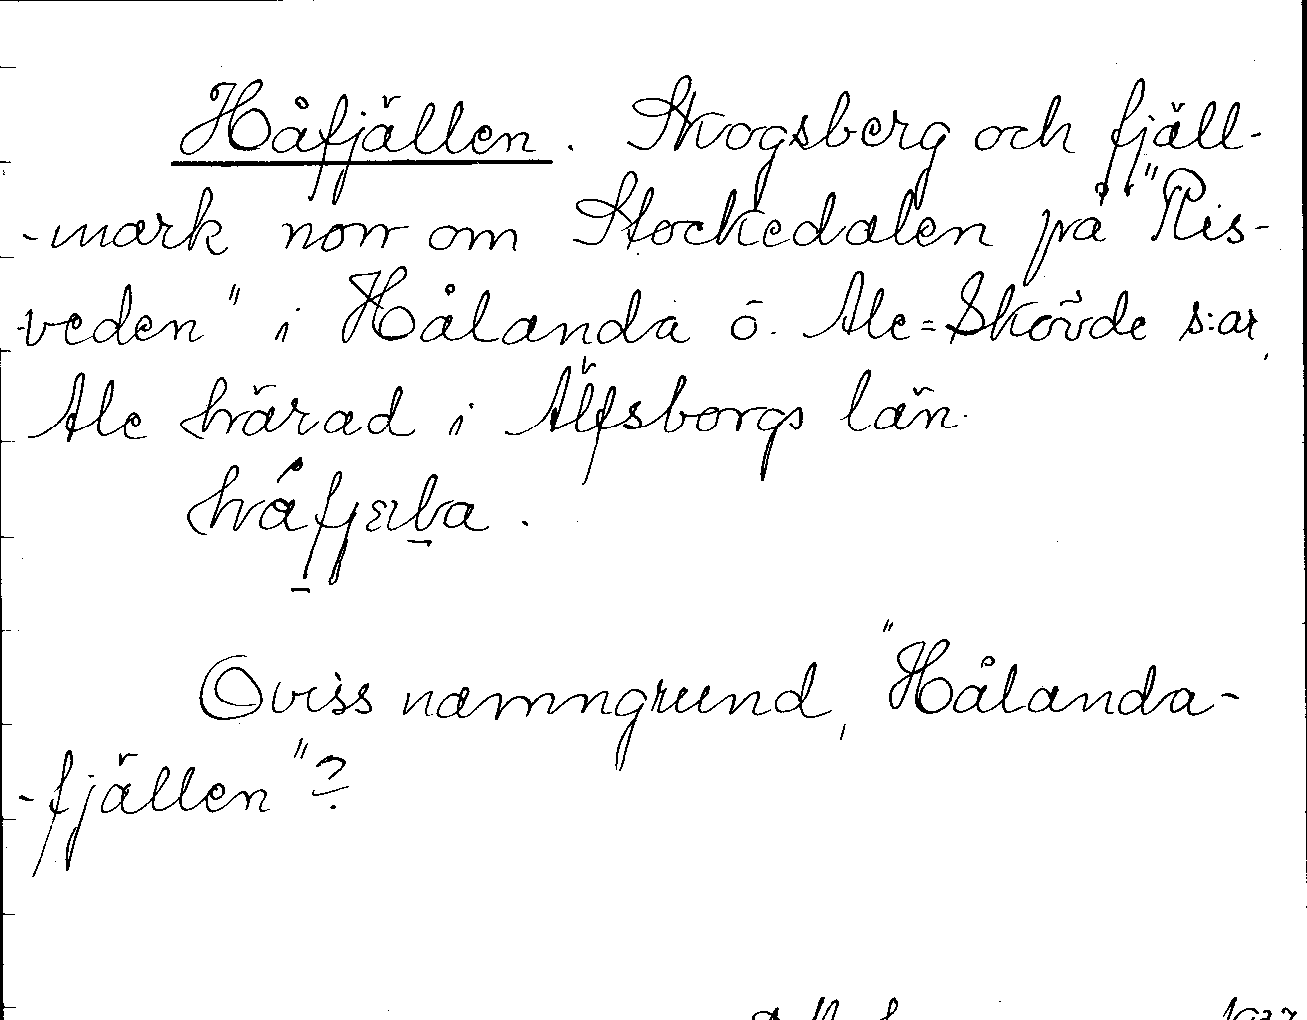 Håfjällen. Skogsberg och fjäll-
-mark norr om Stockedalen på "Ris-
-veden" i Hålanda o. Ale=Skövde s:ar,
Ale härad i Älfsborgs län.
Oviss namngrund, "Hålanda-
-fjällen"?